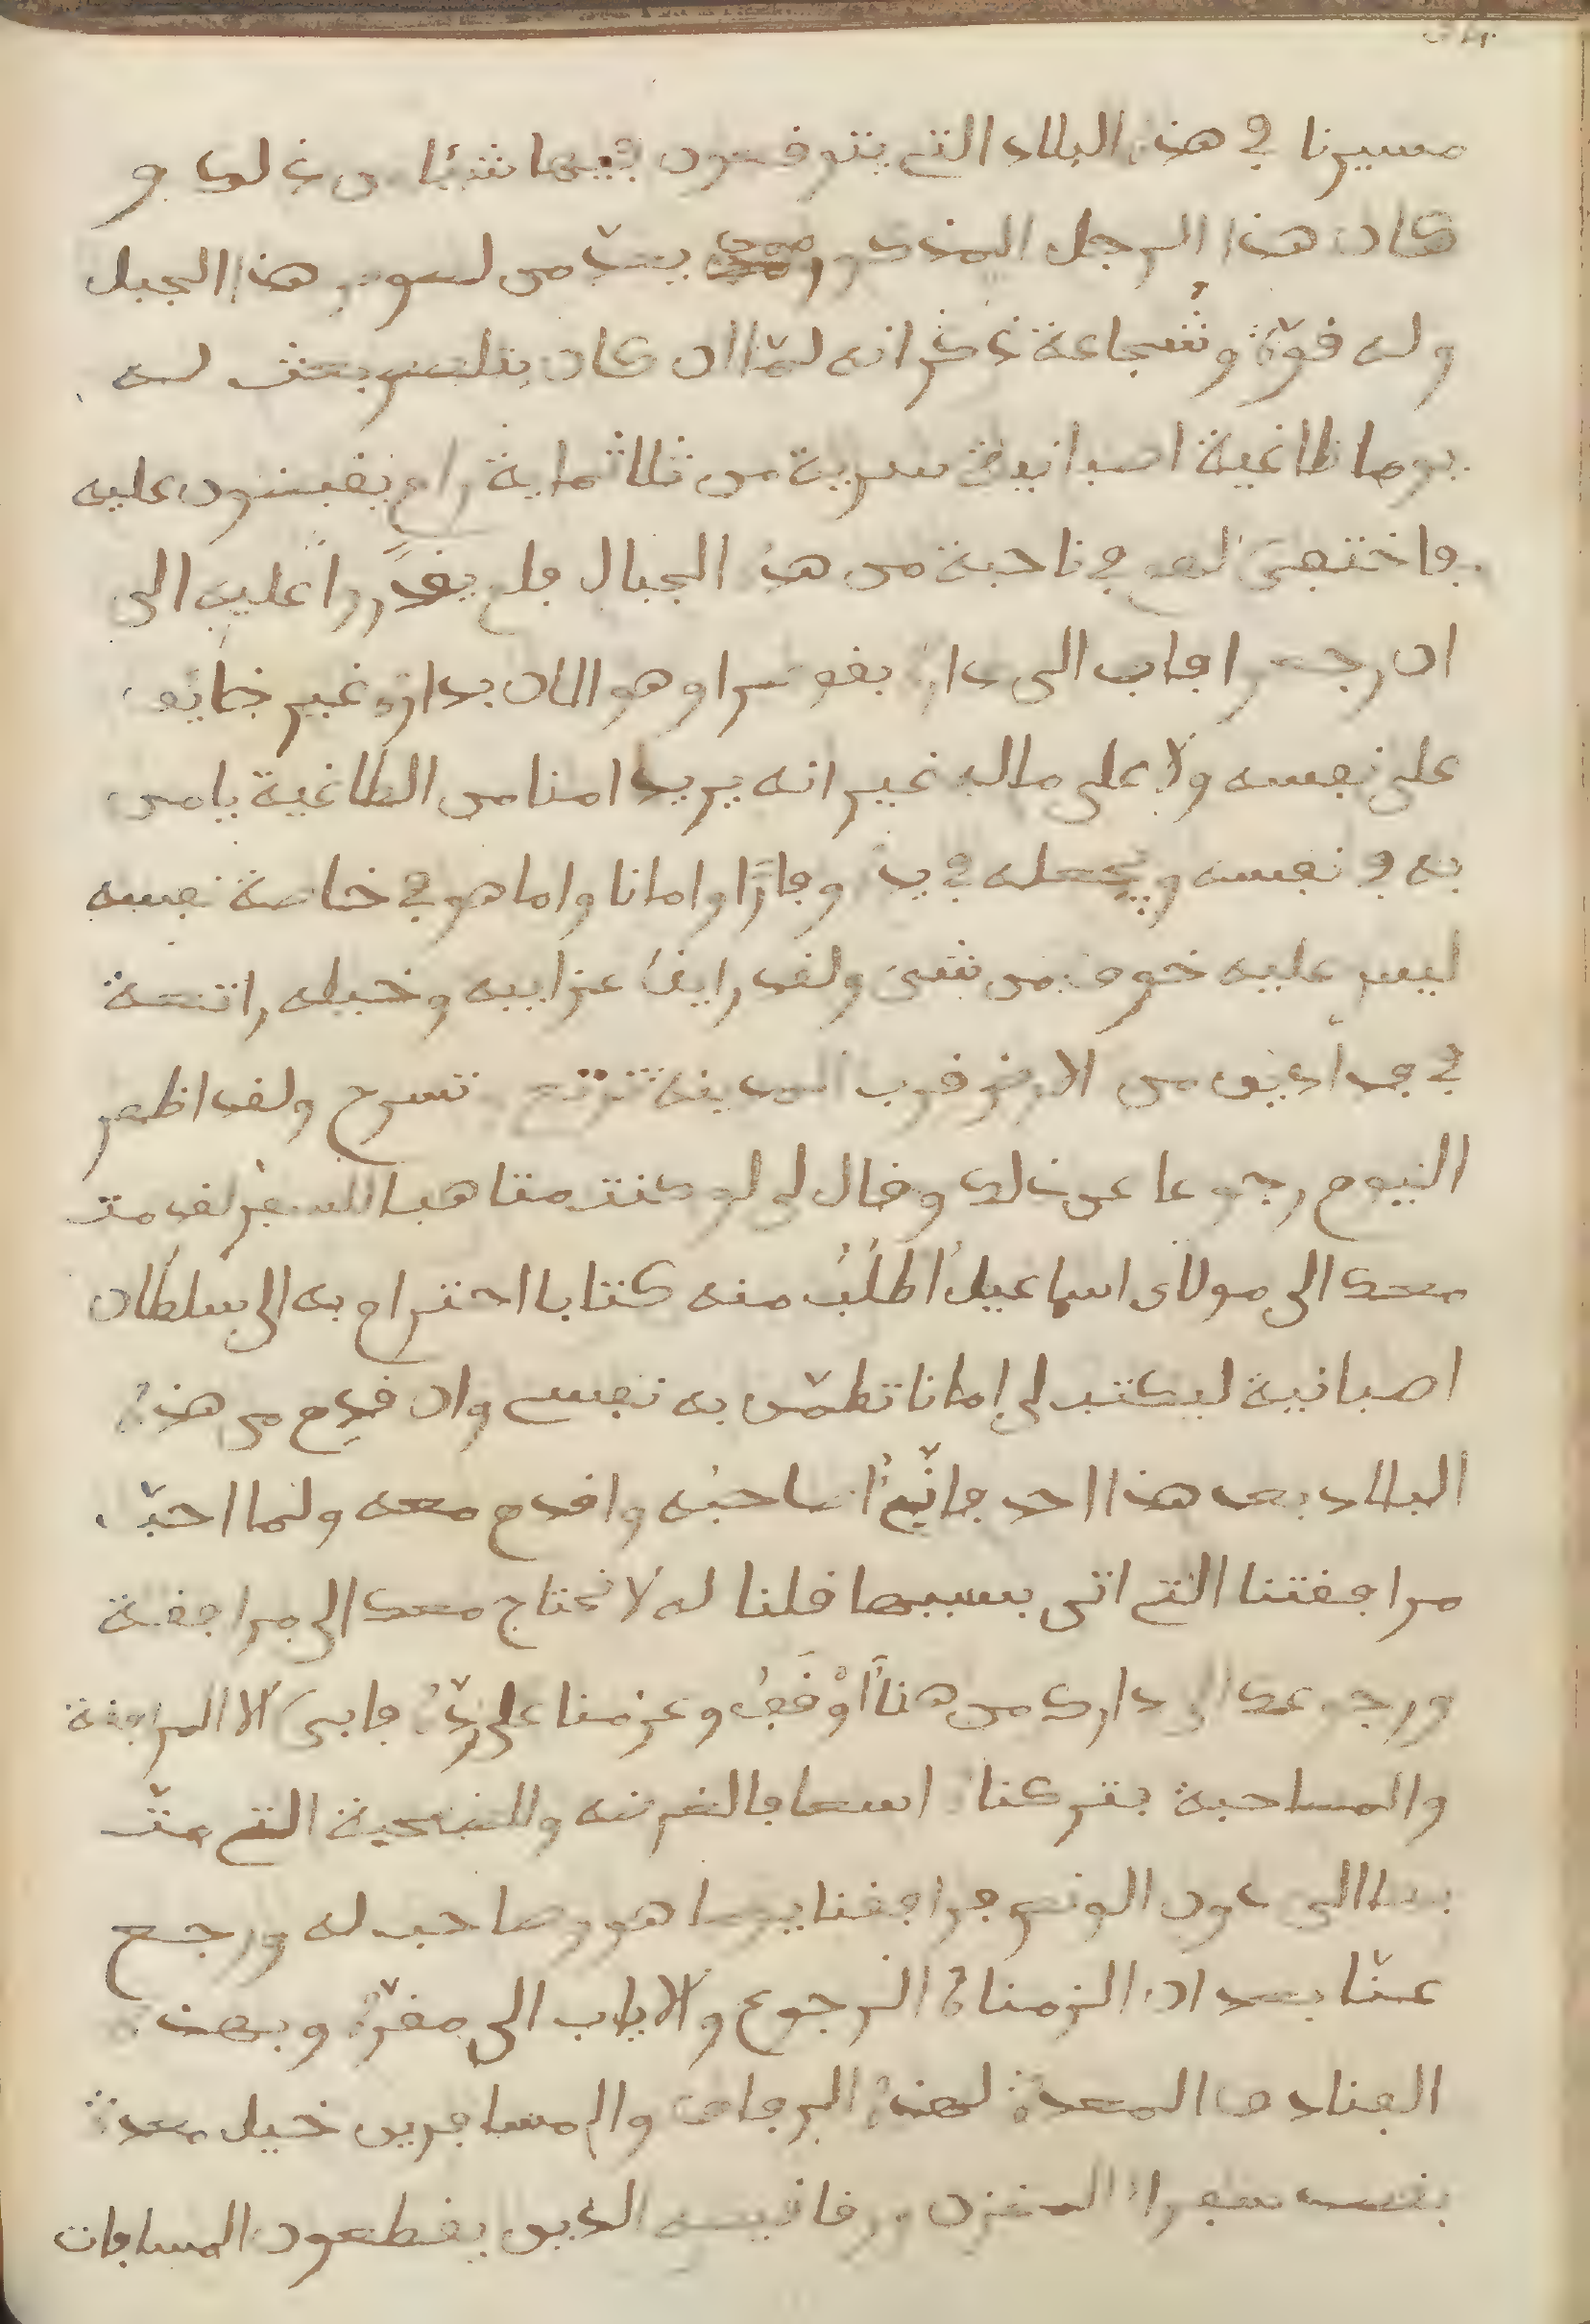 مسيرنا في هذه البلاد التي يتوقعون فيها شيئا من ذلك و
كان هذا الرجل المذكور ممن يعدّ من لصوص هذا الجبل
وله قوّة وشجاعة ذكر انه لمّا ان كان يتلصص بعث له
يوما طاغية اصبانية سرية من ثلاثماية رام يقبضون عليه
فاختفى لهم في ناحية من هذه الجبال فلم يقدروا عليه الى
ان رجعوا فاب الى داره بقوسرا وهو الان بداره غير خايف
على نفسه ولا على ماله غير انه يريد امنا من الطاغية يامن
به في نفسه ويجعله في يده وقارًا وامانا واما هو في خاصة نفسه
ليس عليه خوف من شيء ولقد راينا عزاييه وخيله راتعة
في فدادين من الارض قرب المدينة ترتع وتسرح ولقد اظهر
اليوم رجوعا عن ذلك وقال لي لو كنت متاهبا للسفر لقدمت
معك الى مولاى اسماعيل اطلُبُ منه كتابا احترام به الى سلطان
اصبانية ليكتب لي امانا تطمّن به نفسي وان قدِم من هذه
البلاد بعد هذا احد فانّيِ اصاحبُه واقدم معه ولما احبّ
مرافقتنا التي اتى بسببها قلنا له لا نحتاج معك الى مرافقة
ورجوعك الى دارك من هنا اوْفَقُ وعزمنا على ردّه فابى الا المرافقة
والمصاحبة فتركناه اسعافا لغرضه وللنصحية التي متّ
بها الى دون الونص فرافقنا يوما هو وصاحب له ورجع
عنّا بعد ان الزمناه الرجوع والاياب الى مقرّه وبهذه
الفنادق المعدة لهذه البرقاق والمسافرين خيل معدة
بقصد سفراء المخزن ورقاقيصه الذين يقطعون المسافات